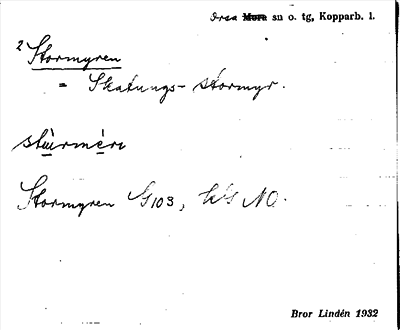 Orsa Mora sn o. tg, Kopparb. l.
2 Stormyren
= Skatungs-stormyr.
stùrmèrı
Stormyren G103, NO.
Bror Lindén 1932